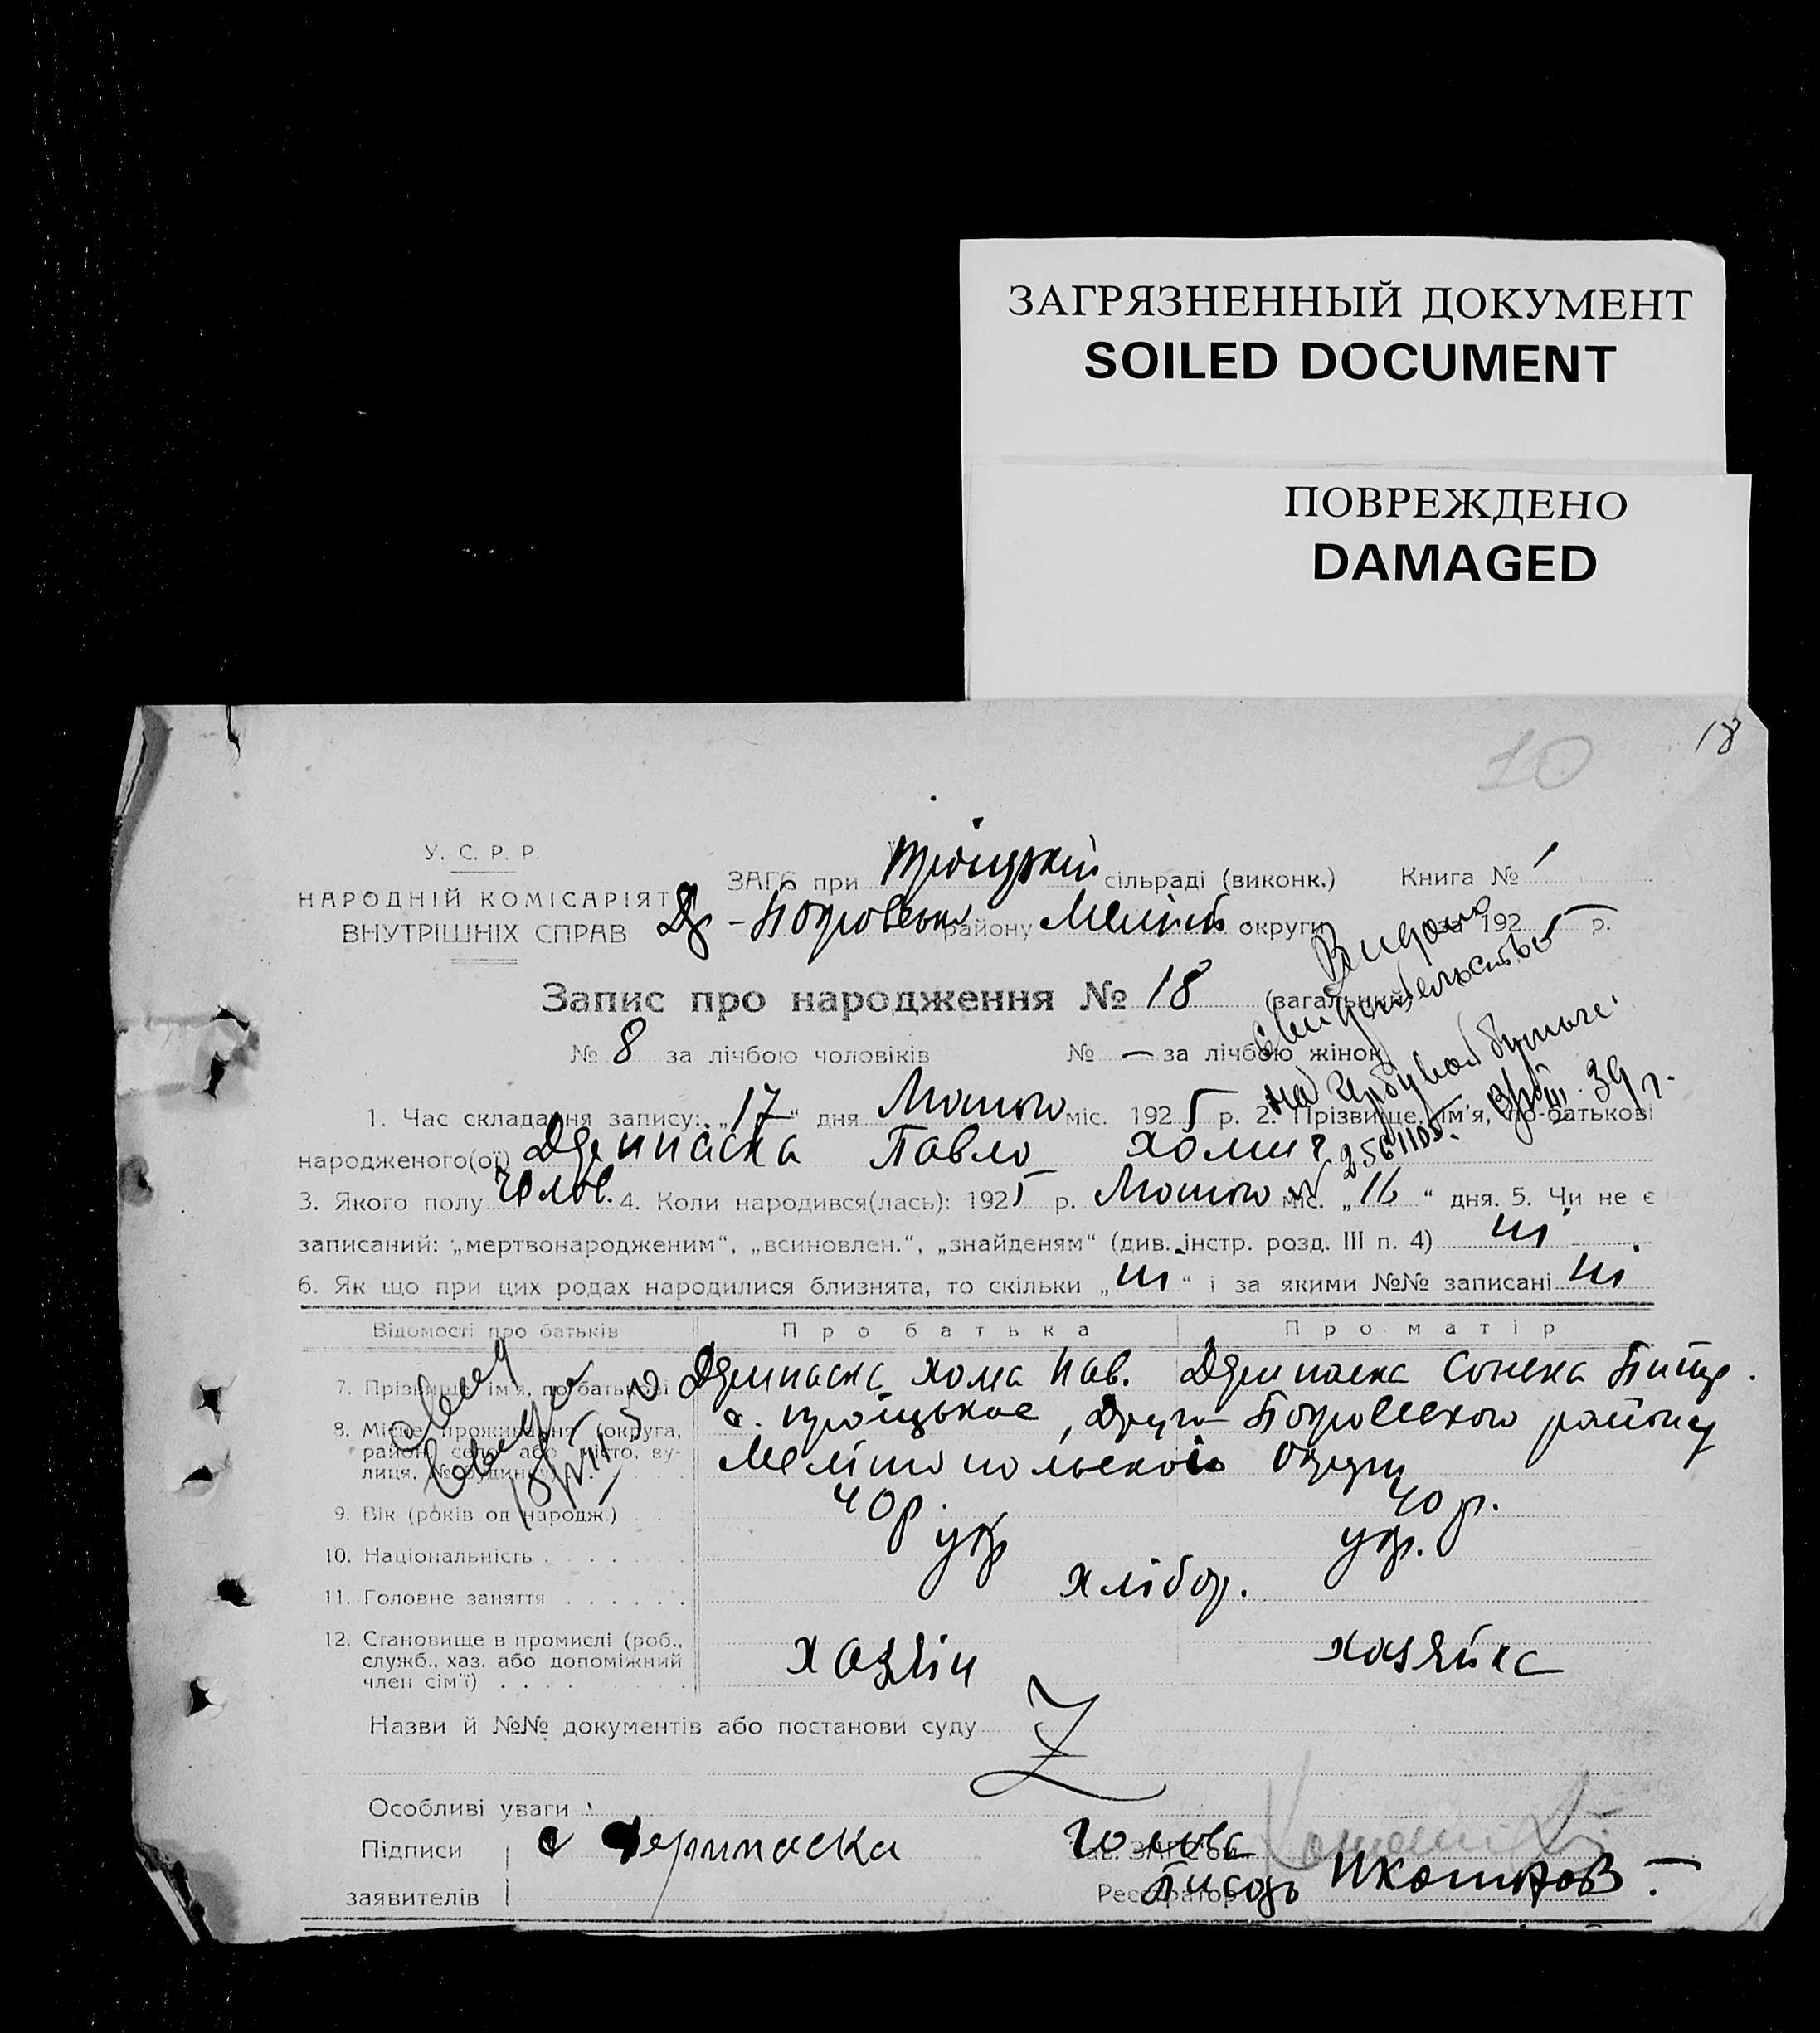 ЗАГРЯЗНЕННЫЙ ДОКУМЕНТ
SOILED DOCUMENT
ПОВРЕЖДЕНО
DAMAGED
18
10
У. С. Р. Р.
НАРОДНІЙ КОМІСАРІЯТ
ВНУТРІШНІХ СПРАВ
ЗАГС при Троіцькій сільраді (виконк.) Книга № 1
- Покровськ району Меліт округи за 1925 р.
Запис про народження № 18 (загальний)
№ 8 за лічбою чоловіків № — за лічбою жінок
Видано
свидетельство
на гербувой бумаге
39 г.
1. Час складання запису: „17“ дня Лютого міс. 1925 р. 2. Прізвище, ім'я, по-батькові
народженого(ої) Дерипаска Павло Хомич
3. Якого полу Чолов. 4. Коли народився(лась): 1925 р. Лютого міс. „16“ дня. 5. Чи не є
записаний: „мертвонародженим“, „всиновлен.“, „знайденям“ (див. інстр. розд. III п. 4) ні
6. Як що при цих родах народилися близнята, то скільки „ні“ і за якими №№ записані ні
Відомості про батьків Про батька Про матір
7. Прізвище, ім'я, по-батькові Дерипаска Хома Пав. Дерипаска Питр.
8. Місце проживання (округа, район, село або місто, вулиця, № будинку) с. Троіцькое, Друго-Покровского району
Мелітопольскоі Округи
9. Вік (років од народж.) 40 р. 40 р.
10. Національність укр укр.
11. Головне заняття хлібор.
12. Становище в промислі (роб.,
служб., хаз. або допоміжний
член сім'ї) хазяін хазяйка
Назви й №№ документів або постанови суду Z
Особливі уваги
Підписи Дерипаска Голова
заявителів Реєстратор Писарь